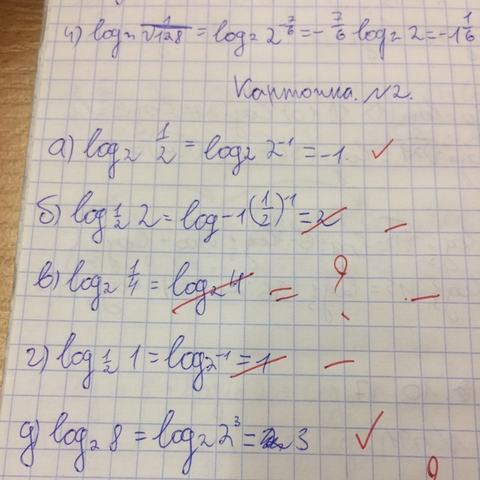 ч) log₂ 1/⁶√128 = log₂ 2^(-7/6) = -7/6 log₂ 2 = -1 1/6
Карточка №2.
а) log₂ 1/2 = log₂ 2⁻¹ = -1. ✓
б) log 1/2 2 = log -1 (1/2)⁻¹ = 2 –
в) log₂ 1/4 = log₂ 4 = ? –
г) log 1/2 1 = log₂⁻¹ = 1 –
д) log₂ 8 = log₂ 2³ = 3 ✓